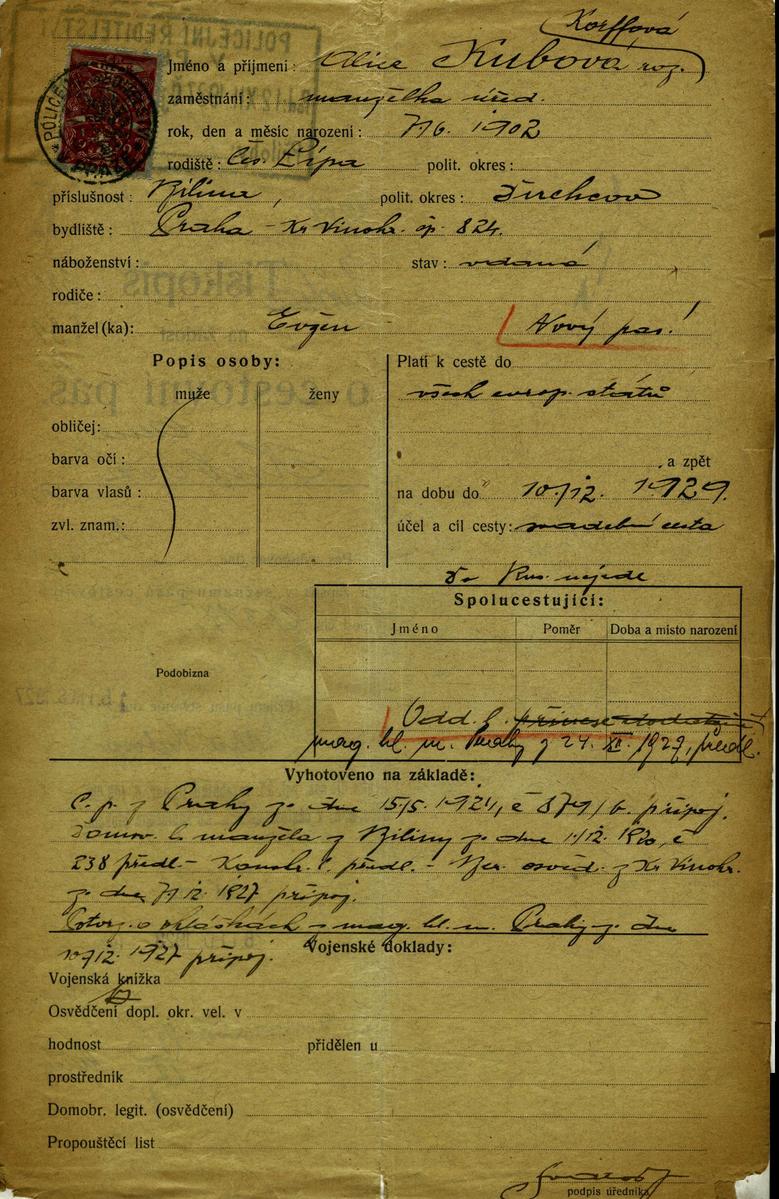 Korffová
Jméno a příjmení: Alice Kubová roz.
zaměstnání: manželka úřed.
rok, den a měsíc narození: 7/6. 1902
rodiště: Čes. Lípa polit. okres:
příslušnost: Bílina, polit. okres: Duchcov
bydliště: Praha - Kr. Vinohr. čp. 824.
náboženství: stav: vdaná
rodiče:
manžel(ka): Evžen Nový pas!
Popis osoby: Platí k cestě do
muže ženy všech evrop. států
obličej:
barva očí: a zpět
barva vlasů: na dobu do 10./12. 1929.
zvl. znam.: účel a cíl cesty: svadební cesta
Do Rus. nejede
Spolucestující:
Jméno Poměr Doba a místo narození
Podobizna
Odd. l. přinese dodatečně
mag. hl. m. Prahy z 24. XI. 1927, předl.
Vyhotoveno na základě:
C. p. z Prahy ze dne 15./5. 1924, č 879/6. připoj.
Domov. l. manžela z Bíliny ze dne 1./12. 1920, č
238 předl. - Ber. osvěd. z Kr. Vinohr.
ze dne 7/12. 1927 připoj.
Potvrz. o ohláškách z mag. hl. m. Prahy ze dne
10/12. 1927 připoj.
Vojenské doklady:
Vojenská knížka
Osvědčení dopl. okr. vel. v
hodnost přidělen u
prostředník
Domobr. legit. (osvědčení)
Propouštěcí list
podpis úředníka